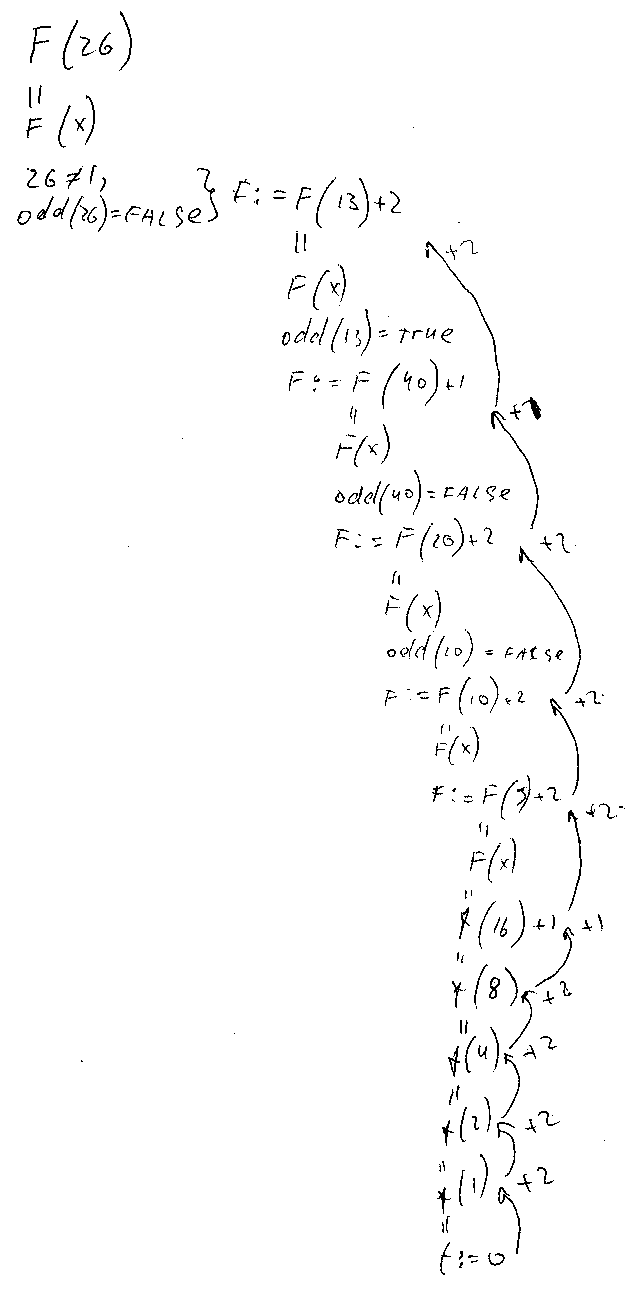 F(26)
"
F(x)
26≠1,
odd(26)=FALSe } F:=F(13)+2
"
+2
F(x)
odd(13)=True
F:=F(40)+1
"
F(x)
odd(40)=FALSe
F:=F(20)+2
+2
"
F(x)
odd(20)=FALSe
F:=F(10)+2
+2
"
F(x)
F:=F(5)+2
+2
"
F(x)
"
F(16)+1
+1
"
F(8)
"
F(4)
+2
"
F(2)
+2
"
F(1)
+2
"
F:=0